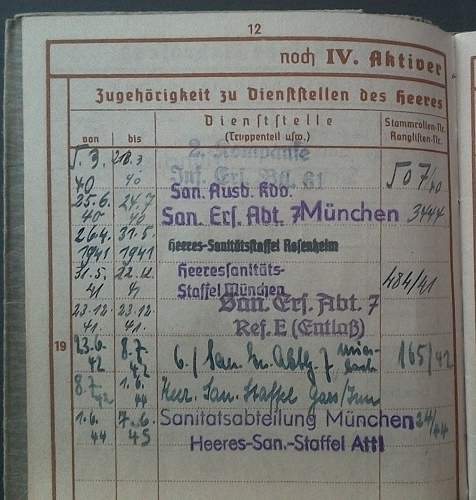 12
noch IV. Aktiver
Zugehörigkeit zu Dienststellen des Heeres
von bis Dienststelle (Truppenteil usw.) Stammrollen-Nr. Ranglisten-Nr.
5.3. 40 40 2. Kompanie Inf. Ers. Btl. 61 507/40
25.6. 40 24.7 40 San. Ausb. Kdo. San. Ers. Abt. 7 München 3444
26.4. 1941 31.5. 1941 Heeres-Sanitätsstaffel Rosenheim
31.5. 41 22.12. 41 Heeressanitäts-Staffel München 484/41
23.12. 41. 23.12. 41. San. Ers. Abt. 7 Res. E (Entlaß)
19 23.6. 42 8.7. 42 6./ San. Abtlg. 7 165/42
8.7. 42 1.6. 44 Heer. San. Staffel Gars/Inn
1.6. 44 7.6. 45 Sanitätsabteilung München 24/44
Heeres-San.-Staffel Attl